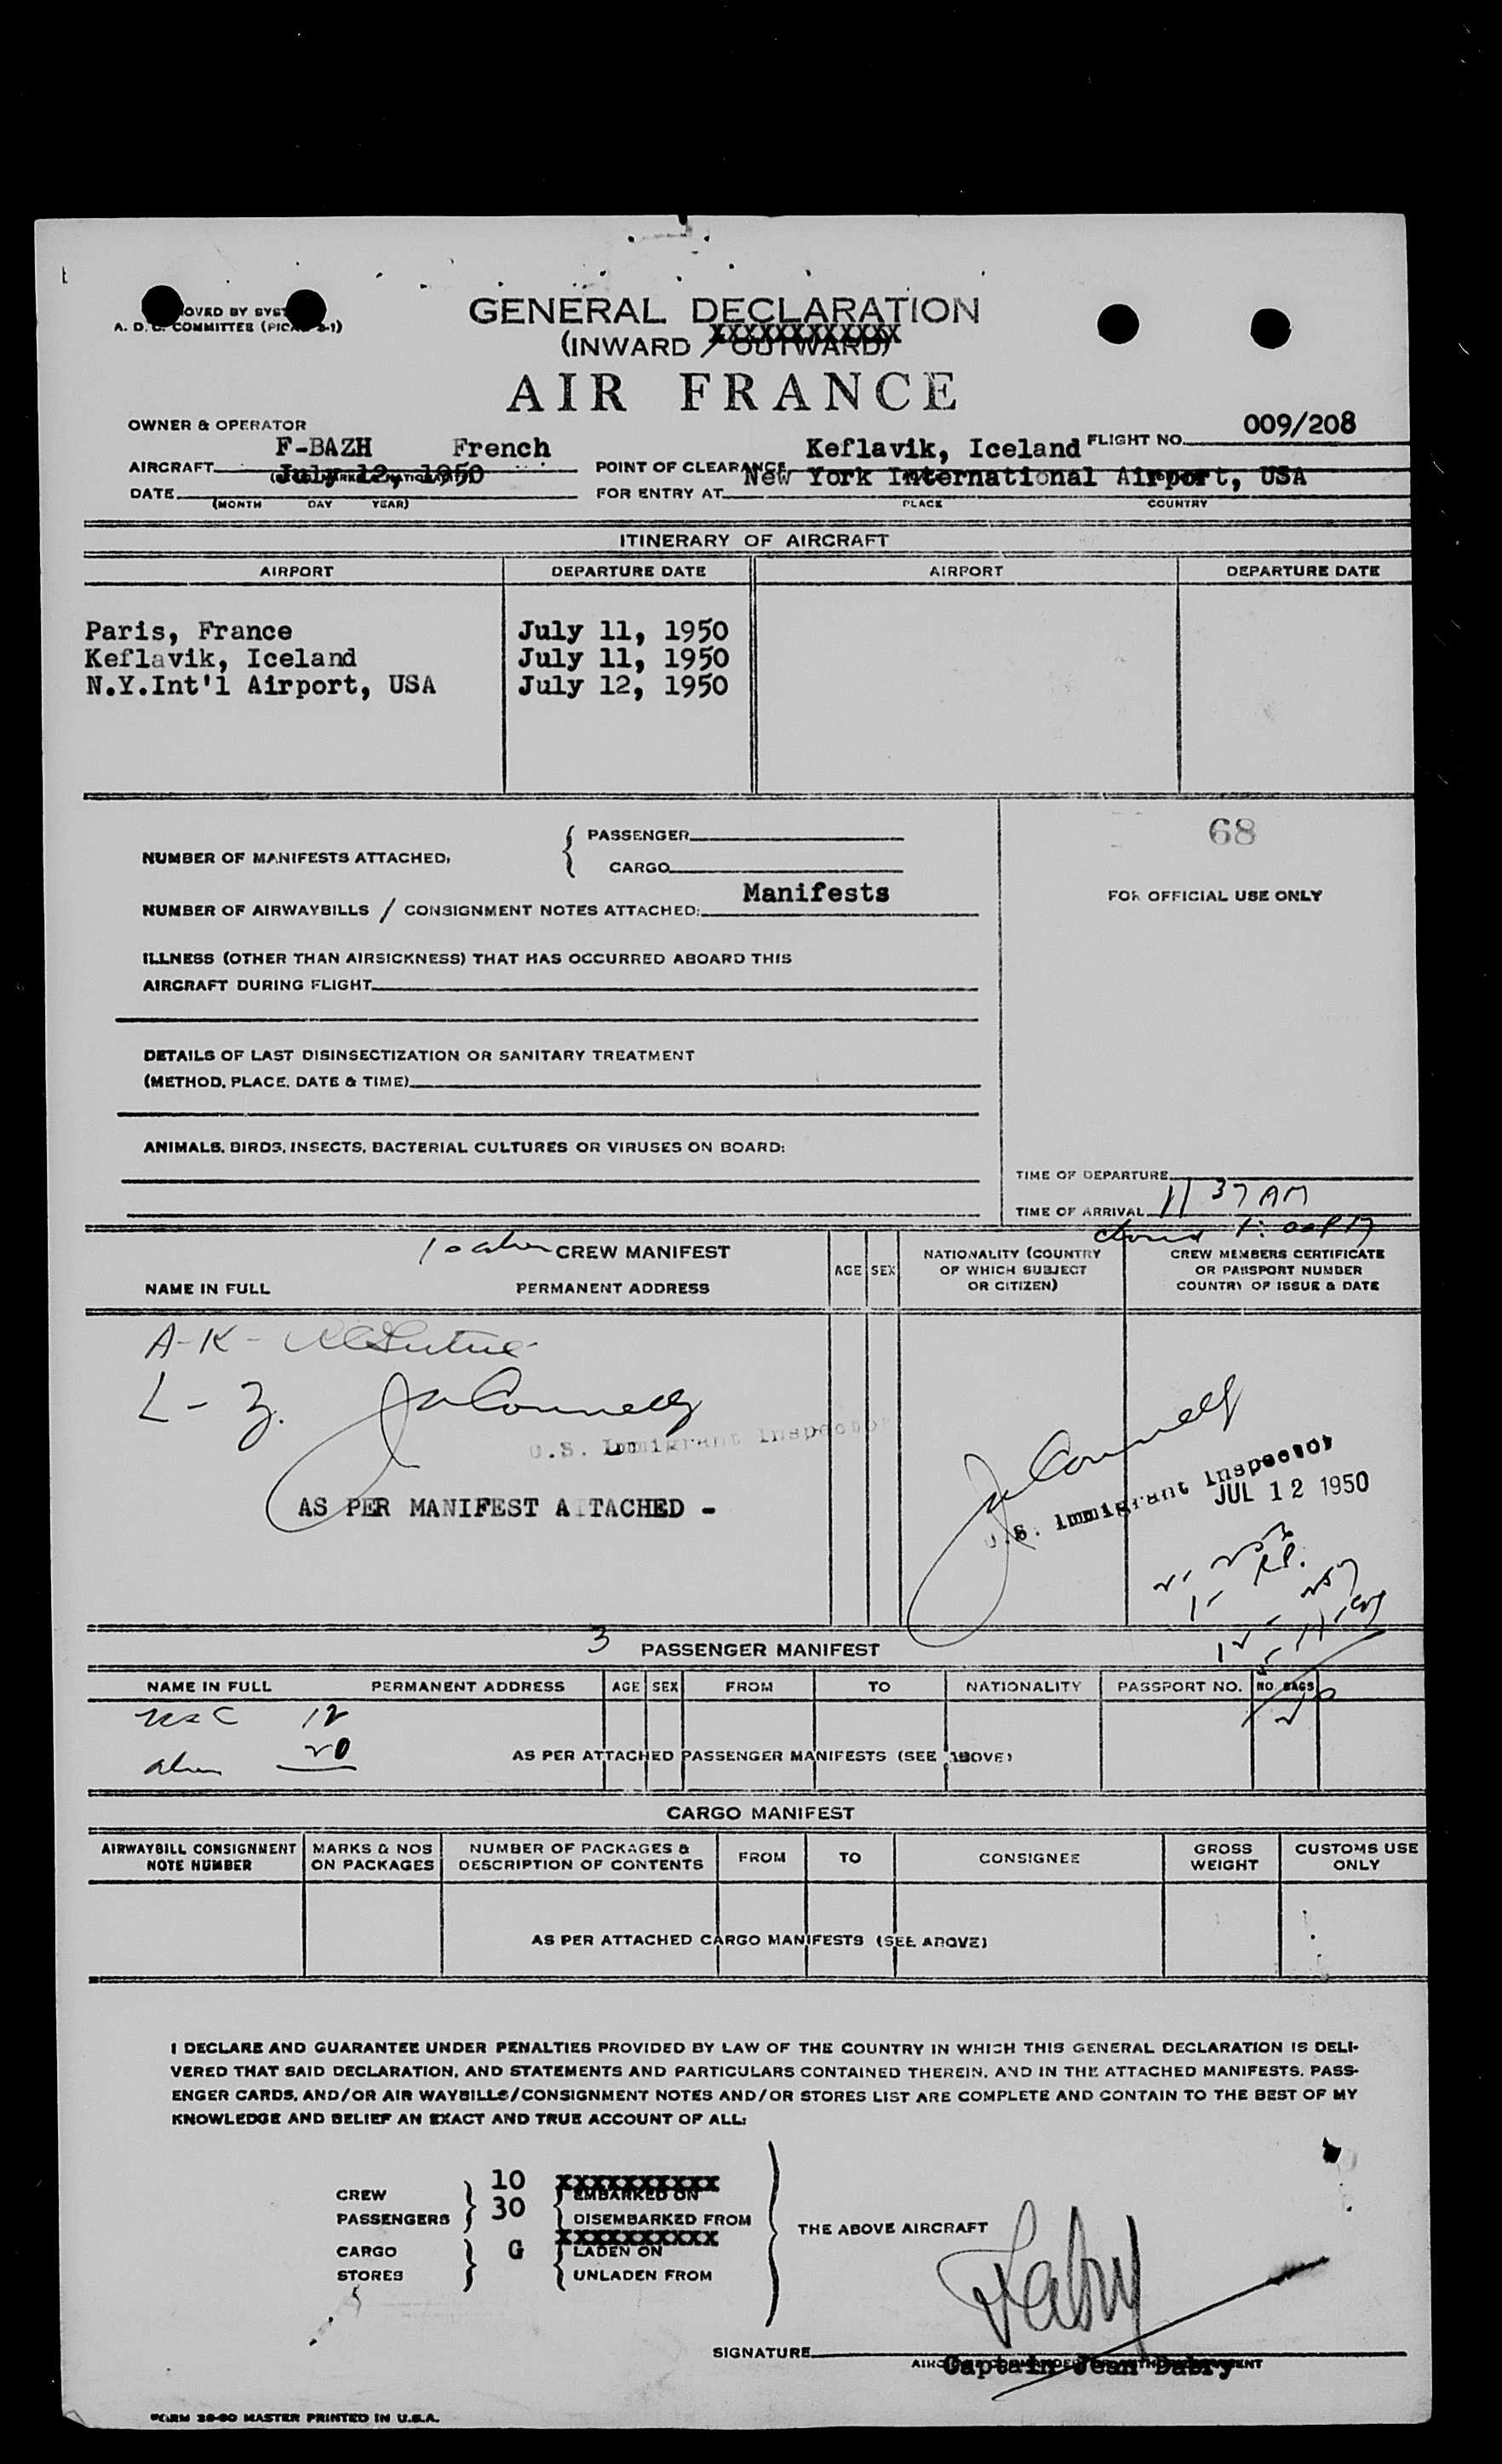 GENERAL DECLARATION
(INWARD / OUTWARD)
XXXXXXXXXXXX
AIR FRANCE
A. D. COMMITTEE
OWNER & OPERATOR
009/208
F-BAZH French
Keflavik, Iceland FLIGHT NO.
AIRCRAFT
POINT OF CLEARANCE
July 12, 1950
New York International Airport, USA
DATE
FOR ENTRY AT
(MONTH DAY YEAR)
PLACE COUNTRY
ITINERARY OF AIRCRAFT
AIRPORT DEPARTURE DATE AIRPORT DEPARTURE DATE
Paris, France July 11, 1950
Keflavik, Iceland July 11, 1950
N.Y.Int'l Airport, USA July 12, 1950
68
NUMBER OF MANIFESTS ATTACHED, { PASSENGER
CARGO
Manifests
NUMBER OF AIRWAYBILLS / CONSIGNMENT NOTES ATTACHED:
FOR OFFICIAL USE ONLY
ILLNESS (OTHER THAN AIRSICKNESS) THAT HAS OCCURRED ABOARD THIS
AIRCRAFT DURING FLIGHT
DETAILS OF LAST DISINSECTIZATION OR SANITARY TREATMENT
(METHOD, PLACE, DATE & TIME)
ANIMALS, BIRDS, INSECTS, BACTERIAL CULTURES OR VIRUSES ON BOARD:
TIME OF DEPARTURE
TIME OF ARRIVAL 11 37 AM
1:00 PM
10 alien CREW MANIFEST
NAME IN FULL PERMANENT ADDRESS AGE SEX NATIONALITY (COUNTRY OF WHICH SUBJECT OR CITIZEN) CREW MEMBERS CERTIFICATE OR PASSPORT NUMBER COUNTRY OF ISSUE & DATE
A-K-
L-Z. J Connelly
U.S. Immigrant Inspector
AS PER MANIFEST ATTACHED -
J Connelly
U.S. Immigrant Inspector
JUL 12 1950
3 PASSENGER MANIFEST
NAME IN FULL PERMANENT ADDRESS AGE SEX FROM TO NATIONALITY PASSPORT NO. NO. BAGS
USC 12
alien 20
AS PER ATTACHED PASSENGER MANIFESTS (SEE ABOVE)
CARGO MANIFEST
AIRWAYBILL CONSIGNMENT NOTE NUMBER MARKS & NOS ON PACKAGES NUMBER OF PACKAGES & DESCRIPTION OF CONTENTS FROM TO CONSIGNEE GROSS WEIGHT CUSTOMS USE ONLY
AS PER ATTACHED CARGO MANIFESTS (SEE ABOVE)
I DECLARE AND GUARANTEE UNDER PENALTIES PROVIDED BY LAW OF THE COUNTRY IN WHICH THIS GENERAL DECLARATION IS DELI-
VERED THAT SAID DECLARATION, AND STATEMENTS AND PARTICULARS CONTAINED THEREIN, AND IN THE ATTACHED MANIFESTS, PASS-
ENGER CARDS, AND/OR AIR WAYBILLS/CONSIGNMENT NOTES AND/OR STORES LIST ARE COMPLETE AND CONTAIN TO THE BEST OF MY
KNOWLEDGE AND BELIEF AN EXACT AND TRUE ACCOUNT OF ALL:
CREW 10 XXXXXXXXXX EMBARKED ON
PASSENGERS 30 DISEMBARKED FROM
THE ABOVE AIRCRAFT
CARGO G XXXXXXXXXX LADEN ON
STORES UNLADEN FROM
Dabry
SIGNATURE
Captain Jean Dabry
FORM 20-60 MASTER PRINTED IN U.S.A.